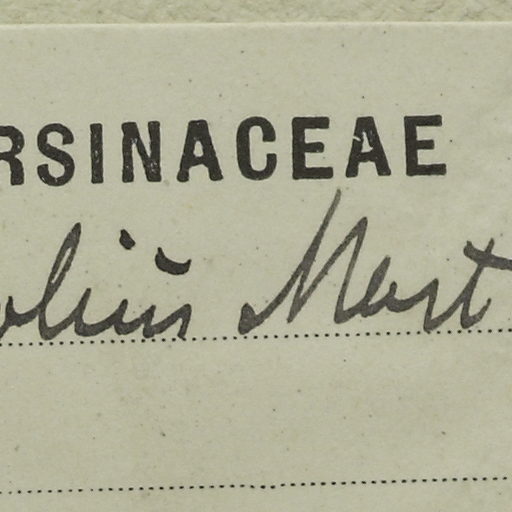 RSINACEAE
olius Mart